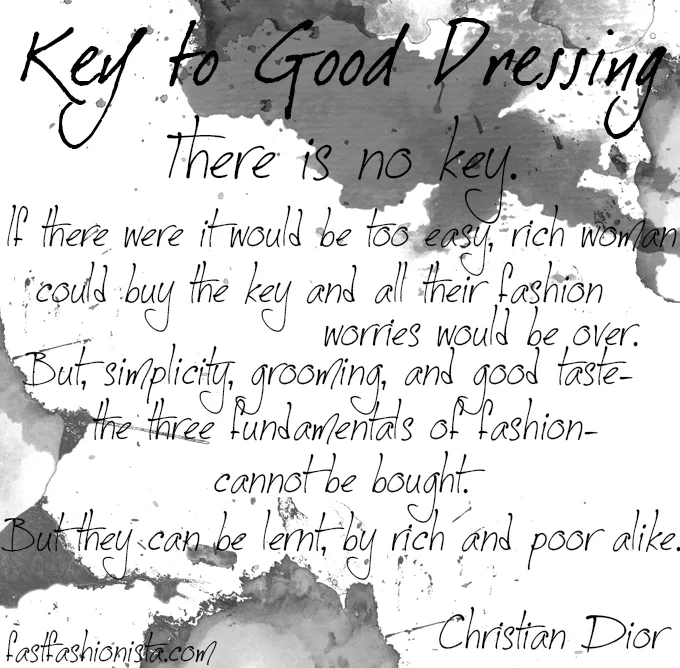 Key to Good Dressing
There is no key.
If there were it would be too easy, rich woman
could buy the key and all their fashion
worries would be over.
But, simplicity, grooming, and good taste-
the three fundamentals of fashion-
cannot be bought.
But they can be lernt, by rich and poor alike.
Christian Dior
fastfashionista.com